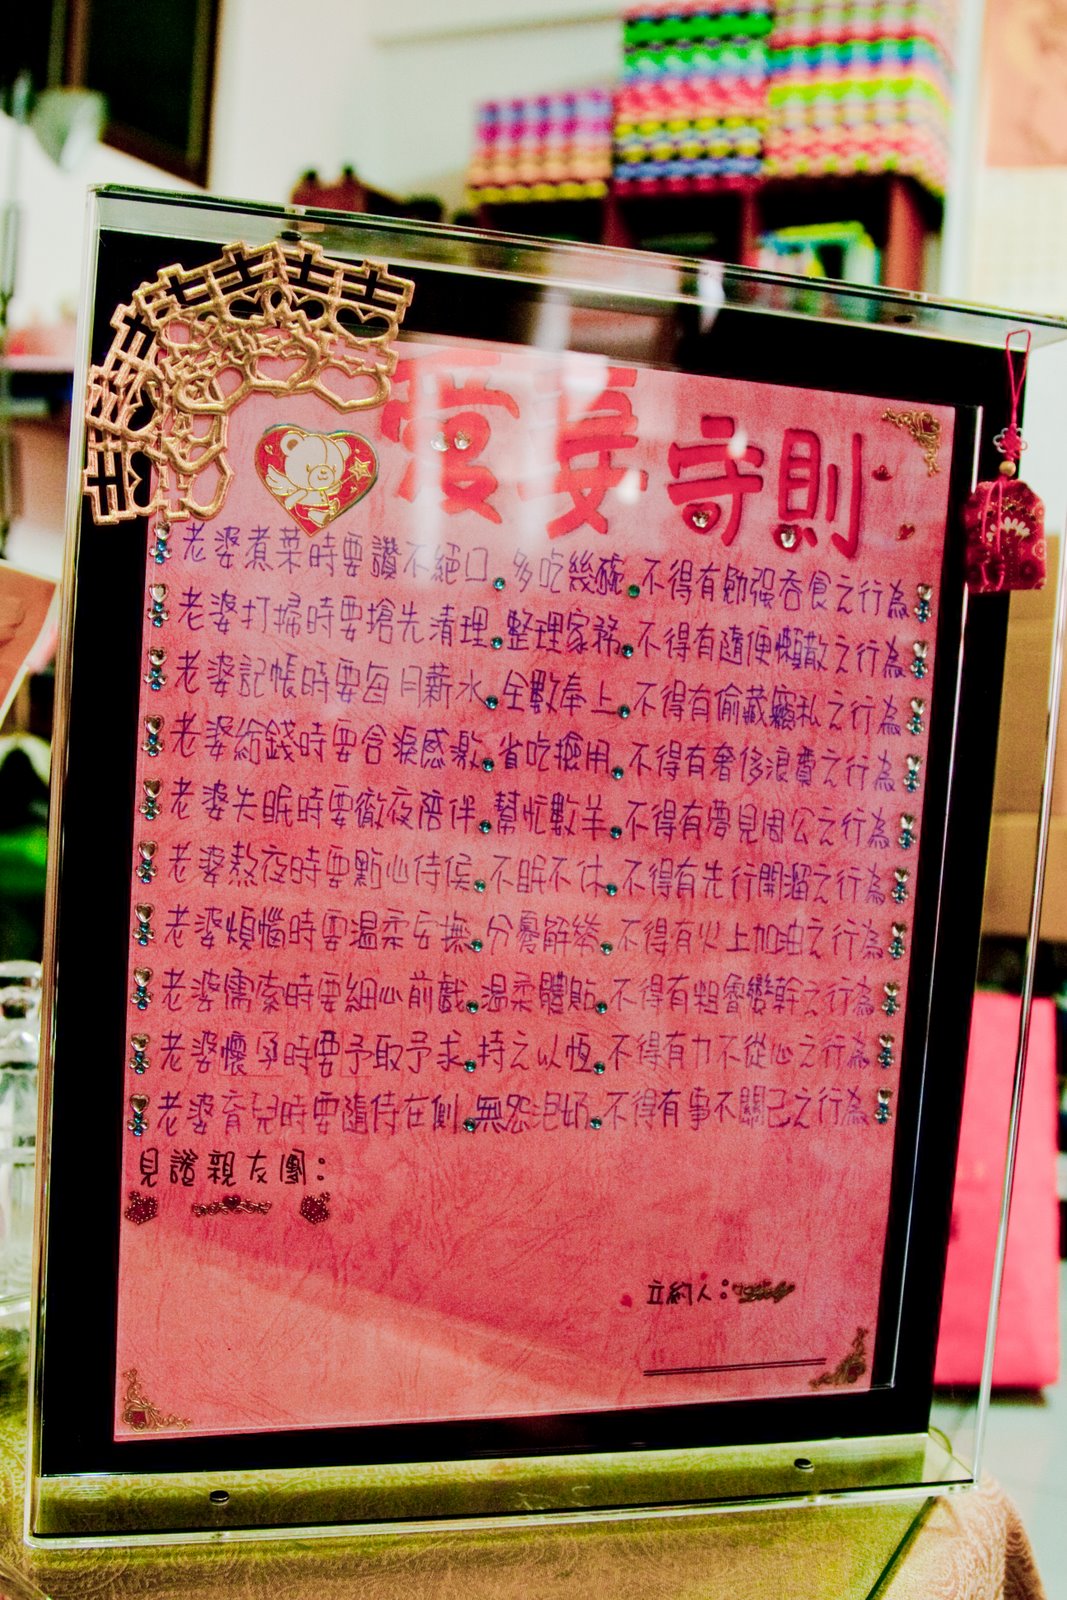 愛妻守則
老婆煮菜時要讚不絕口.多吃幾碗.不得有勉强吞食之行為
老婆打掃時要搶先清理.整理家務.不得有隨便懶散之行為
老婆記帳時要每月薪水.全數奉上.不得有偷藏竊私之行為
老婆給錢時要含淚感激.省吃撿用.不得有奢侈浪費之行為
老婆失眠時要徹夜陪伴.幫忙數羊.不得有夢見周公之行為
老婆熬夜時要點心侍侯.不眠不休.不得有先行開溜之行為
老婆煩惱時要溫柔安撫.分憂解勞.不得有火上加油之行為
老婆需索時要細心前戲.溫柔體貼.不得有粗魯蠻幹之行為
老婆懷孕時要予取予求.持之以恆.不得有力不從心之行為
老婆育兒時要隨侍在側.無怨泡奶.不得有事不關己之行為
見證親友團：
立約人：